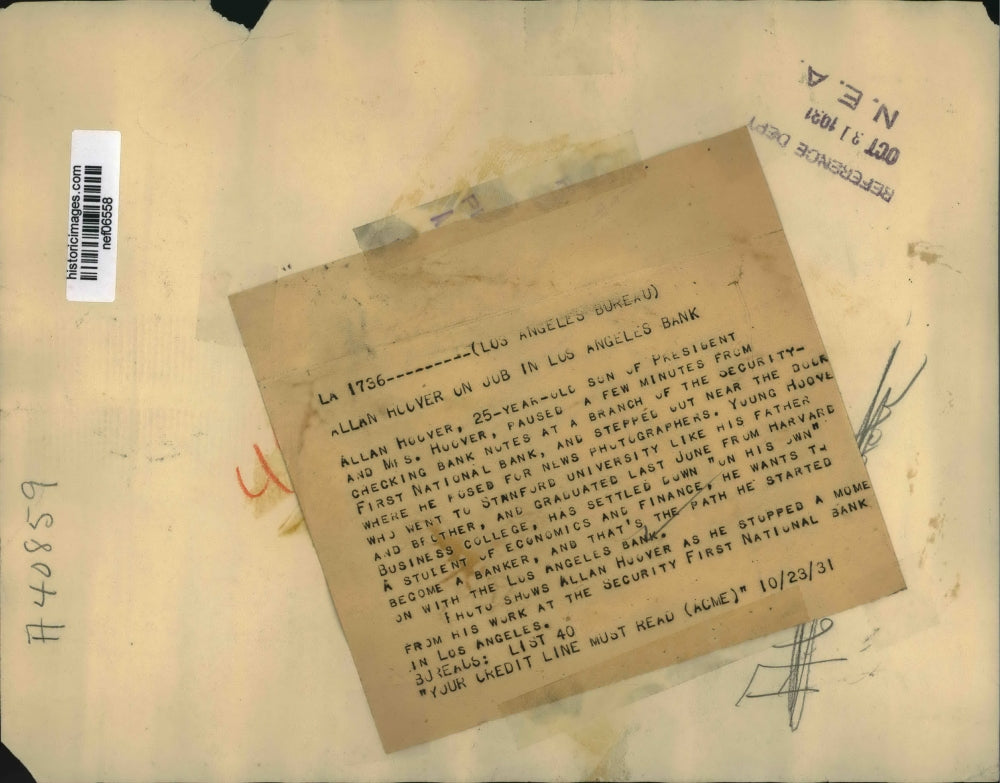 historicimages.com
nef06558
N.E.A.
OCT 21 1931
REFERENCE DEPT
LA 1736----------(LOS ANGELES BUREAU)
ALLAN HOOVER ON JOB IN LOS ANGELES BANK
ALLAN HOOVER, 25-YEAR-OLD SON OF PRESIDENT
AND MRS. HOOVER, PAUSED A FEW MINUTES FROM
CHECKING BANK NOTES AT A BRANCH OF THE SECURITY-
FIRST NATIONAL BANK, AND STEPPED OUT NEAR THE DOOR
WHERE HE POSED FOR NEWS PHOTOGRAPHERS. YOUNG HOOVE
WHO WENT TO STANFORD UNIVERSITY LIKE HIS FATHER
AND BROTHER, AND GRADUATED LAST JUNE FROM HARVARD
BUSINESS COLLEGE, HAS SETTLED DOWN "ON HIS OWN".
A STUDENT OF ECONOMICS AND FINANCE, HE WANTS TO
BECOME A BANKER, AND THAT'S THE PATH HE STARTED
ON WITH THE LOS ANGELES BANK.
PHOTO SHOWS ALLAN HOOVER AS HE STOPPED A MOME
FROM HIS WORK AT THE SECURITY FIRST NATIONAL BANK
IN LOS ANGELES.
BUREAUS: LIST 40
"YOUR CREDIT LINE MUST READ (ACME)" 10/23/31
A40859